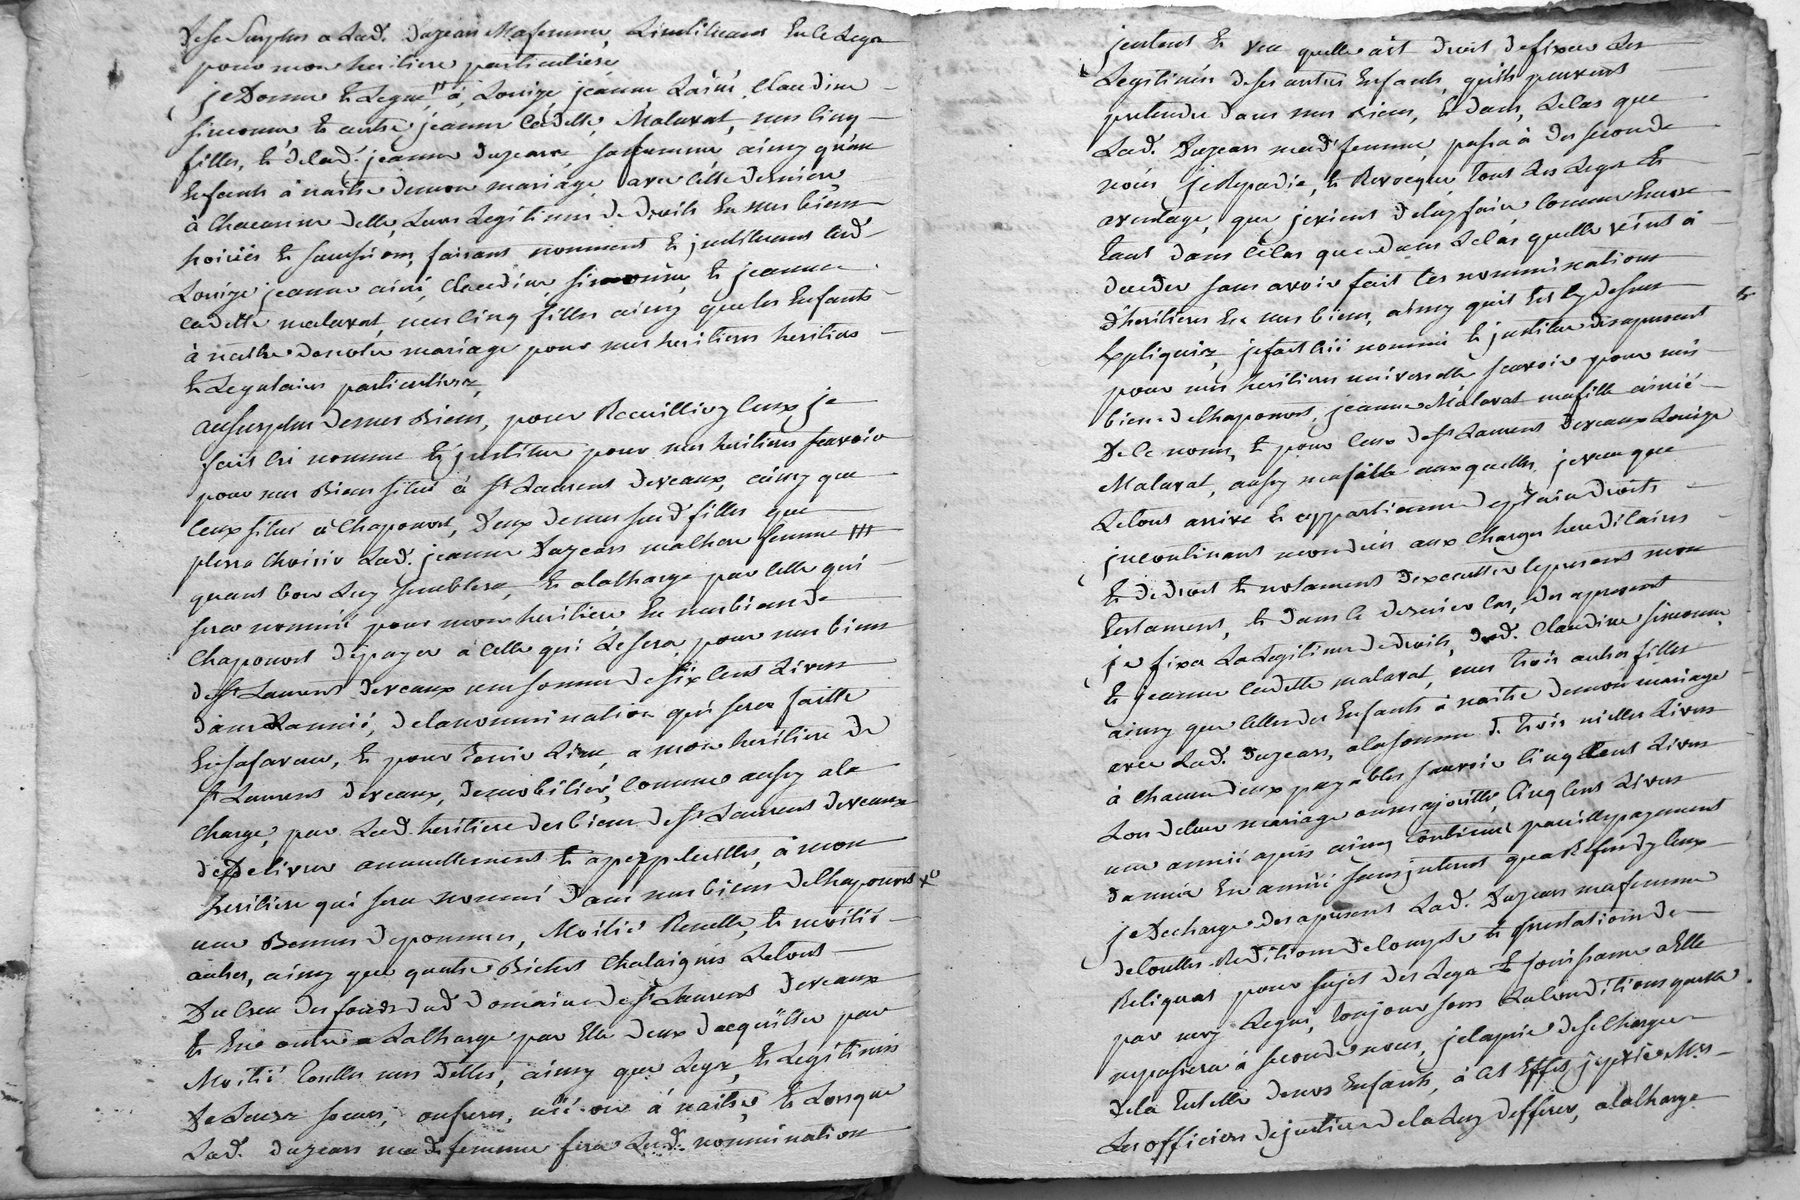 de se surplus a Lad. dugeais Mafemme, Linstituant En ce Lega
pour mon heritiere particuliere
je Donne & Legue, à Louize jeanne Lainé, Claudine
simonne & autre jeanne Cadette Malavat, mes cinq
filles, & de Lad. jeanne dugeais sa femme ainsy qu'au
Enfants à naitre de mon mariage avec cette derniere
à Chacune delle, Leurs Legitimes de droits En mes biens
hoiries & sucession, faisant, nommant & jnstituant Lesd.
Louize jeanne ainé, Claudine simonne, & jeanne
cadette malavat, mes cinq filles ainsy que les Enfants
à naitre de notre mariage pour mes heritiers
& Legataires particuliers,
au surplus de mes Biens, pour Recuilliez ceux je
fait Cri nomme & jnstitue pour mes heritiers scavoir
pour mes Biens situé à St Laurent devaux, ainsy que
ceux situé à Chaponost, deux de mes susd filles que
plerra choisir Lad. jeanne Dugeais ma chere femme
quant bon Luy semblera, & a la charge par celle qui
sera nommé pour mon heritiere En mes biens de
Chaponost de payer a celle qui Le sera pour mes biens
de St Laurent devaux une somme de six cens Livres
dans Lannéé, de la nomination qui sera faitte
En sa faveur, & pour tenir Lieu, a mon heritiere de
St Laurent devaux, de mobilier, comme aussy a la
charge, par Lad. heritiere des biens de St Laurent devaux
de delivrer annuellement à mon
heritiere qui sera nommé dans mes biens de Chaponost
une Bennes de pommes, Moitié Renette, & moitié
autres, ainsy que quatre Bichet Chataignes Le tout
Du Creu des fonds dud domaine de St Laurent devaux
& Encore a La charge par Elle deux dacquitter par
Moitié toutes mes dettes, ainsy que Lega, & Legitimes
De Leurs soeurs, ou freres, né ou à naitre, & Lorsque
Lad. dugeais mad. femme fera Lad. nomination
jentent & veu quelle ait droit de fixer Les
Legitimés de ses autres Enfants, qu'ils peuvent
pretendre dans mes Biens, & dans, Le cas que
Lad. Dugeais mad. femme, passa à des seconde
noces je Repudie, & Revoque tout Les Legs &
aventage, que je viens de luy faire, comme Encore
tant dans ce cas que dans Le cas quelle vint à
deceder sans avoir fait Les nominations
d'heritieres En mes biens, ainsy quil Est cy dessus
Expliquéz, je fait Cri nomme & jnstitue des apresent
pour mes heritieres universelle scavoir pour mes
biens de Chaponost, jeanne Malavat ma fille ainéé
De ce nom, & pour ceux de St Laurent devaux Louize
Malavat, aussy ma fille auxquelles je veu que
Le tout arrive & appartienne de plain droits
jncontinant mon deces aux charges hereditaires
& de droit & notament dexecutter le present mon
testament, & dans ce dernier cas, des apresent
je fixe La Legitime de droits, de lad. Claudine simonne,
& jeanne Cadette malavat, mes trois autres filles
ainsy que celles des Enfants à naitre de mon mariage
avec Lad. Dugeais, a la somme de trois milles Livres
à chacun deux payables scavoir cinq Cent Livres
Lors de leur mariage ou majorité, cinq cens Livres
une annéé apres ainsy continué pareille payement
dannéé En annéé sans jnterest
je decharge des apresent Lad. Dugeais ma femme
de toutes Reditions de compte & prestation de
Reliquat pour sujet des Lega & jouissance a Elle
par moy Legué, toujour sous La conditions quelle
ne passera à seconde noces, je la prie de se charger
de la tutelle de nos Enfants, à cet Effet je prie Mrs
Les officiers de justice de la luy defferer, a la charge